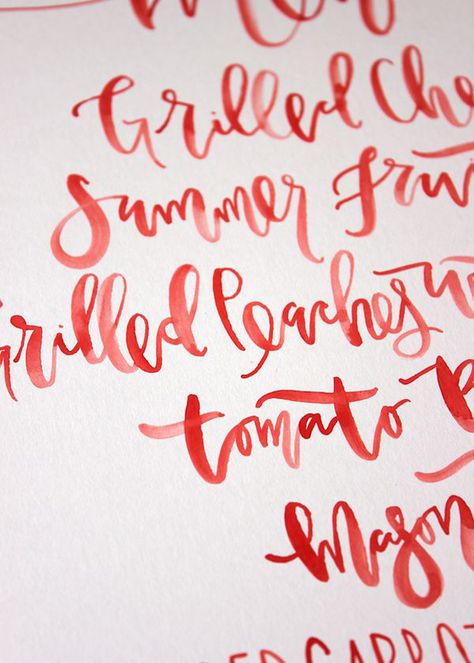 Grilled Che
Summer Frui
Grilled Peaches w
tomato B
Mason
ED CARROT